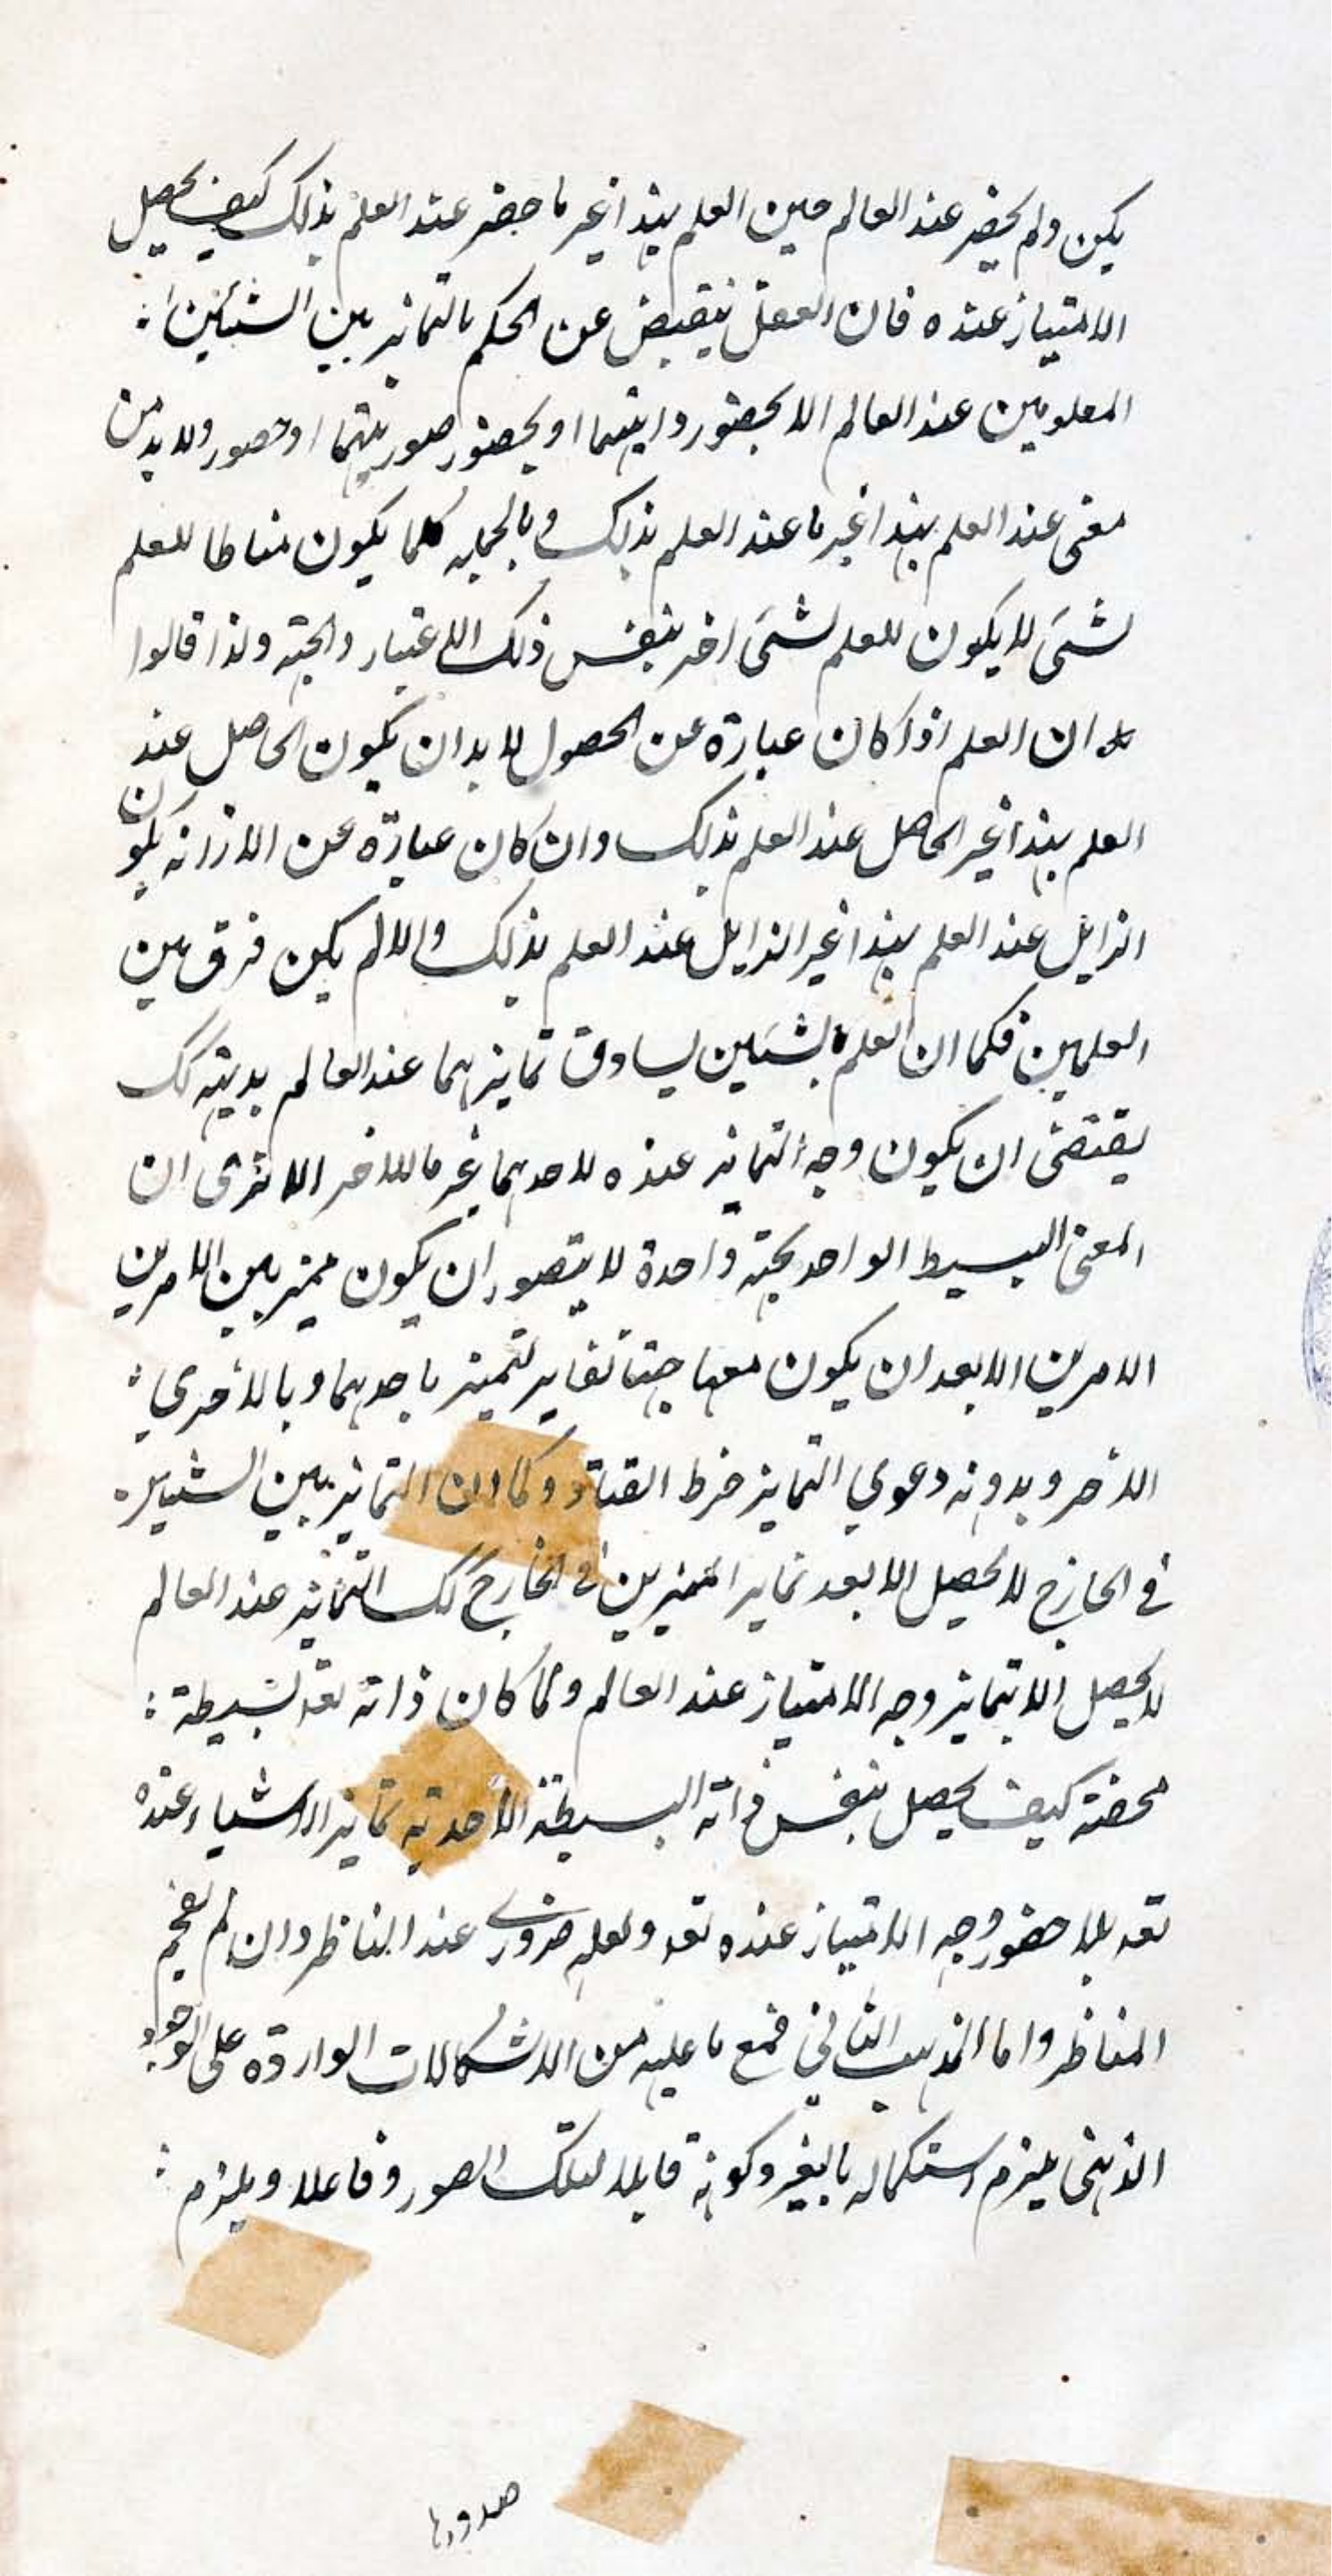 يكن ولم يحضر عند العالم حين العلم بهذا غير ما حضر عند العلم بذلك كيف يحصل
الامتياز عنده فان العقل ينقبض عن الحكم بالتمايز بين الشيئين
المعلومين عند العالم الا بحضور ذاتيهما او بحضور صورتيهما او حصور ولابد من
معنى عند العلم بهذا غير ما عند العلم بذلك وبالجمله كلما يكون مناطا للعلم
لشىء لا يكون للعلم لشىء اخر بنفس ذلك الاعتبار والجهة ولذا قالوا
ان العلم اذا كان عبارة عن الحصول لا بد ان يكون الحاصل عند
العلم بهذا غير الحاصل عند العلم بذلك وان كان عبارة عن الازالة يكون
الزايل عند العلم بهذا غير الزايل عند العلم بذلك والا لم يكن فرق بين
العلمين فكما ان العلم بشيئين يساوق تمايزهما عند العالم بديهة كك
يقتضى ان يكون وجه التمايز عنده لاحدهما غير ما للاخر الا ترى ان
المعنى البسيط الواحد بجهة واحدة لا يتصور ان يكون مميز بين الامرين
الامرين الا بعد ان يكون معها جهتا تغاير لتميز باحدهما وبالأخرى
الأخر وبدونه دعوي التمايز خرط القتاد وكما ان التمايز بين الشيئين
في الخارج لا يحصل الا بعد تماير المميزين في الخارج كك التمايز عند العالم
لا يحصل الا بتمايز وجه الامتياز عند العالم ولما كان ذاته تعه بسيطة
محضة كيف يحصل بنفس ذاته البسيطة الأحدية تمايز الاشياء عنده
تعه بلا حضور وجه الامتياز عنده تعه ولعله ضروري عند الناظر وان لم يفحم
المناظر واما المذهب الثاني فمع ما عليه من الاشكالات الواردة على الوجود
الذهنى يلزم استكماله بالغير وكونه قابلا لتلك الصور وفاعلا ويلزم
صدورها